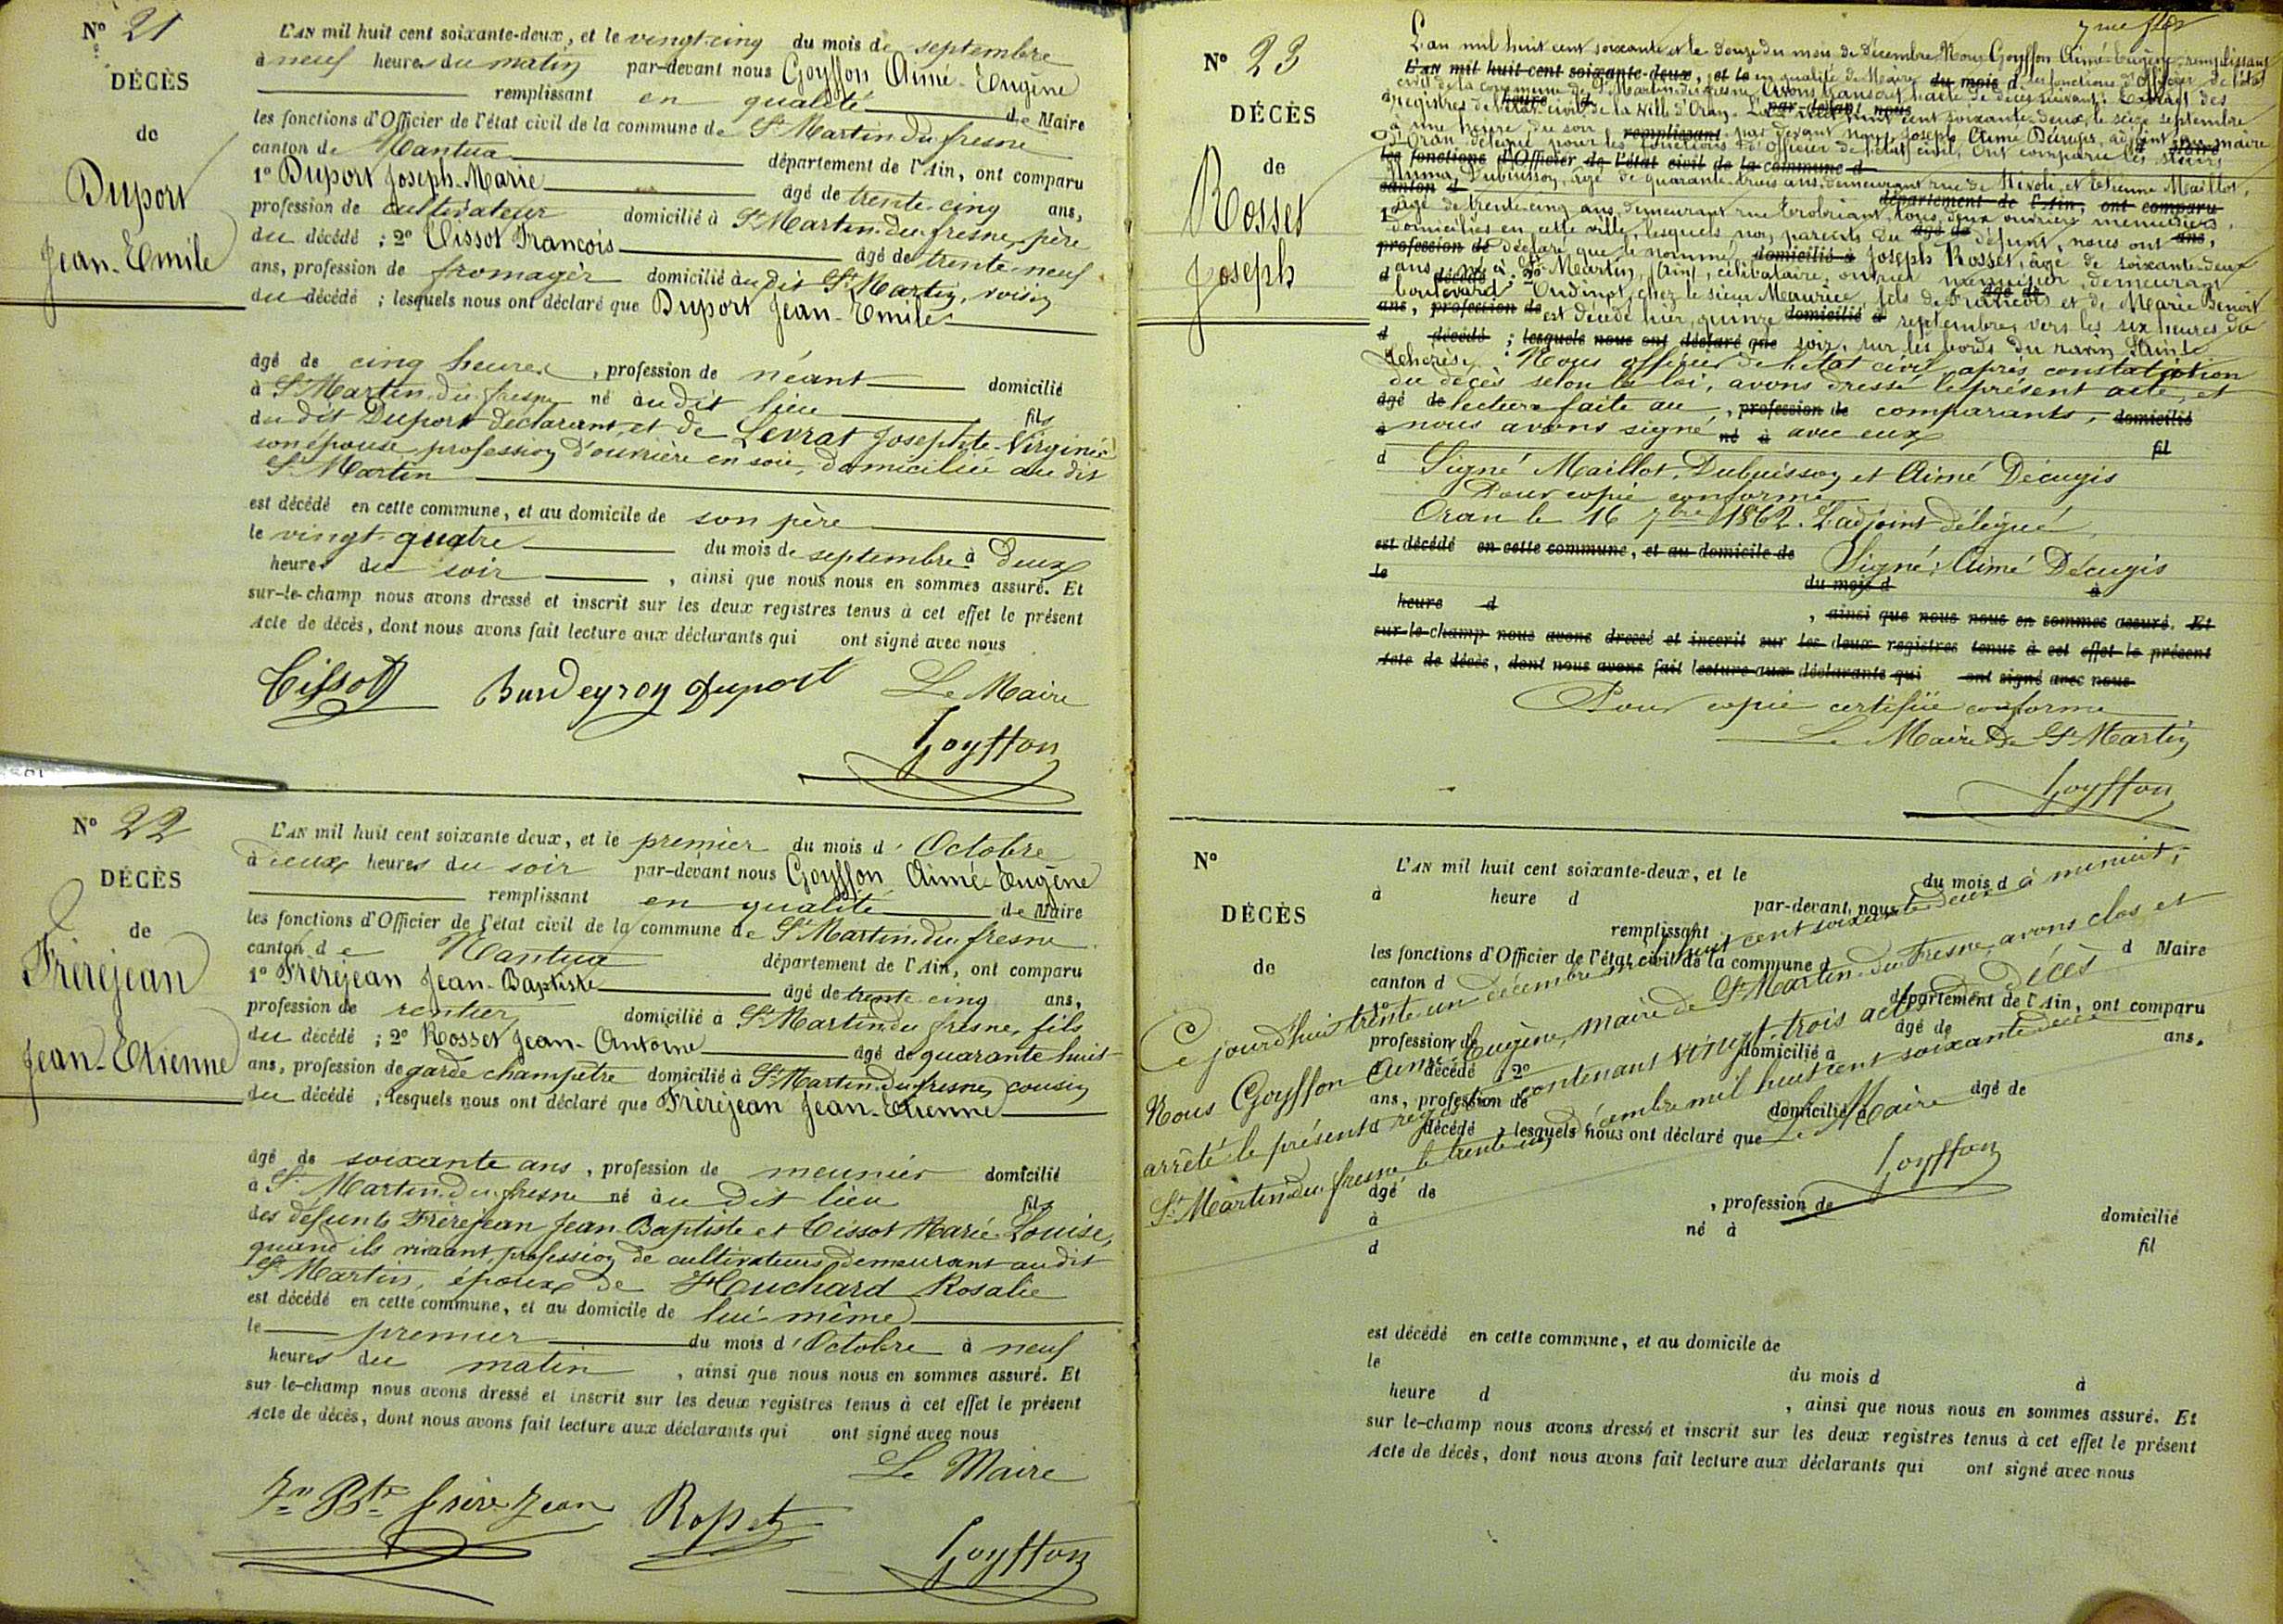 N° 21
DÉCÈS
de
Duport
Jean-Emile
L'AN mil huit cent soixante-deux, et le vingt-cinq du mois de septembre
à neuf heures du matin par-devant nous Goyffon Aimé-Eugène
remplissant en qualité de Maire
les fonctions d'Officier de l'état civil de la commune de St Martin du fresne
canton de Nantua département de l'Ain, ont comparu
1° Duport Joseph-Marie âgé de trente-cinq ans,
profession de cultivateur domicilié à St Martin-du-fresne, père
du décédé ; 2° Tissot François âgé de trente-neuf
ans, profession de fromager domicilié au dit St Martin, voisin
du décédé ; lesquels nous ont déclaré que Duport Jean-Emile
âgé de cinq heures, profession de néant domicilié
à St Martin-du-fresne né au dit lieu fils
du dit Duport déclarant, et de Levrat Josephte-Virginie
son épouse, profession d'ouvrière en soie, domiciliée au dit
St Martin
est décédé en cette commune, et au domicile de son père
le vingt-quatre du mois de septembre à deux
heures du soir, ainsi que nous nous en sommes assuré. Et
sur-le-champ nous avons dressé et inscrit sur les deux registres tenus à cet effet le présent
Acte de décès, dont nous avons fait lecture aux déclarants qui ont signé avec nous
Tissot Burdeyron Duport Le Maire
Goyffon
N° 22
DÉCÈS
de
Frèrejean
Jean-Etienne
L'AN mil huit cent soixante deux, et le premier du mois d'Octobre
à deux heures du soir par-devant nous Goyffon Aimé-Eugène
remplissant en qualité de Maire
les fonctions d'Officier de l'état civil de la commune de St Martin-du-fresne
canton de Nantua département de l'Ain, ont comparu
1° Frèrejean Jean-Baptiste âgé de trente-cinq ans,
profession de rentier domicilié à St Martin du fresne, fils
du décédé ; 2° Rosset Jean-Antoine âgé de quarante-huit
ans, profession de garde champêtre domicilié à St Martin-du-fresne, cousin
du décédé ; lesquels nous ont déclaré que Frèrejean Jean-Etienne
âgé de soixante ans, profession de meunier domicilié
à St Martin-du-fresne né au dit lieu fils
des défunts Frèrejean Jean-Baptiste et Tissot Marie-Louise,
quand ils vivaient, profession de cultivateurs demeurant au dit
St Martin, époux de Houchard Rosalie
est décédé en cette commune, et au domicile de lui-même
le premier du mois d'Octobre à neuf
heures du matin, ainsi que nous nous en sommes assuré. Et
sur le-champ nous avons dressé et inscrit sur les deux registres tenus à cet effet le présent
Acte de décès, dont nous avons fait lecture aux déclarants qui ont signé avec nous
Le Maire
Jn Bte frère Jean Rosset
Goyffon
N° 23
DÉCÈS
de
Rosset
Joseph
L'an mil huit cent soixante et le douze du mois de Décembre Nous Goyffon Aimé-Eugène, remplissant
en qualité de Maire les fonctions d'Officier de l'état
civil de la commune de St Martin-du-fresne avons transcrit l'acte de décès suivant : Extrait des
registres de l'état civil de la ville d'Oran. L'an mil huit cent soixante-deux, le seize septembre
à une heure du soir, par devant nous, Joseph Aimé Décugis, adjoint au maire
d'Oran, délégué pour les fonctions d'officier de l'état civil, ont comparu les sieurs
Numa Dubuisson, âgé de quarante-trois ans, demeurant rue de Tivoli, et Etienne Maillot,
âgé de trente-cinq ans, demeurant rue tous deux ouvriers menuisiers,
domiciliés en cette ville, lesquels non parents du défunt, nous ont
déclaré que le nommé Joseph Rosset, âgé de soixante-deux
ans, né à St Martin, (Ain), célibataire, ouvrier menuisier, demeurant
boulevard Oudinot, chez le sieur Maurice, fils de François et de Marie Benoit
est décédé hier, quinze septembre, vers les six heures du
soir, sur les bords du ravin Sainte
Thérèse. Nous officier de l'état civil, après constatation
du décès selon la loi, avons dressé le présent acte, et
lecture faite au comparants,
nous avons signé avec eux
Signé Maillot, Dubuisson et Aimé Décugis
Pour copie conforme
Oran le 16 7bre 1862. L'adjoint délégué,
Signé : Aimé Décugis
est décédé en cette commune, et au domicile de
le du mois d à
heure d , ainsi que nous nous en sommes assuré. Et
sur-le-champ nous avons dressé et inscrit sur les deux registres tenus à cet effet le présent
Acte de décès, dont nous avons fait lecture aux déclarants qui ont signé avec nous
Pour copie certifiée conforme
Le Maire de St Martin
Goyffon
N°
DÉCÈS
de
L'AN mil huit cent soixante-deux, et le du mois d
à heure d par-devant nous
remplissant d Maire
les fonctions d'Officier de l'état civil de la commune d
canton d département de l'Ain, ont comparu
1° âgé de ans,
profession de domicilié à
d décédé ; 2° âgé de
ans, profession de domicilié à
d décédé ; lesquels nous ont déclaré que
Ce jourd'hui trente-un décembre mil huit cent soixante-deux à minuit,
Nous Goyffon Aimé-Eugène, maire de St Martin-du-Fresne, avons clos et
arrêté le présent registre contenant vingt-trois actes de décès
St Martin-du-fresne le trente-un décembre mil huit cent soixante deux
Le Maire
Goyffon
âgé de , profession de domicilié
à né à fil
d
est décédé en cette commune, et au domicile de
le du mois d à
heure d , ainsi que nous nous en sommes assuré. Et
sur le-champ nous avons dressé et inscrit sur les deux registres tenus à cet effet le présent
Acte de décès, dont nous avons fait lecture aux déclarants qui ont signé avec nous